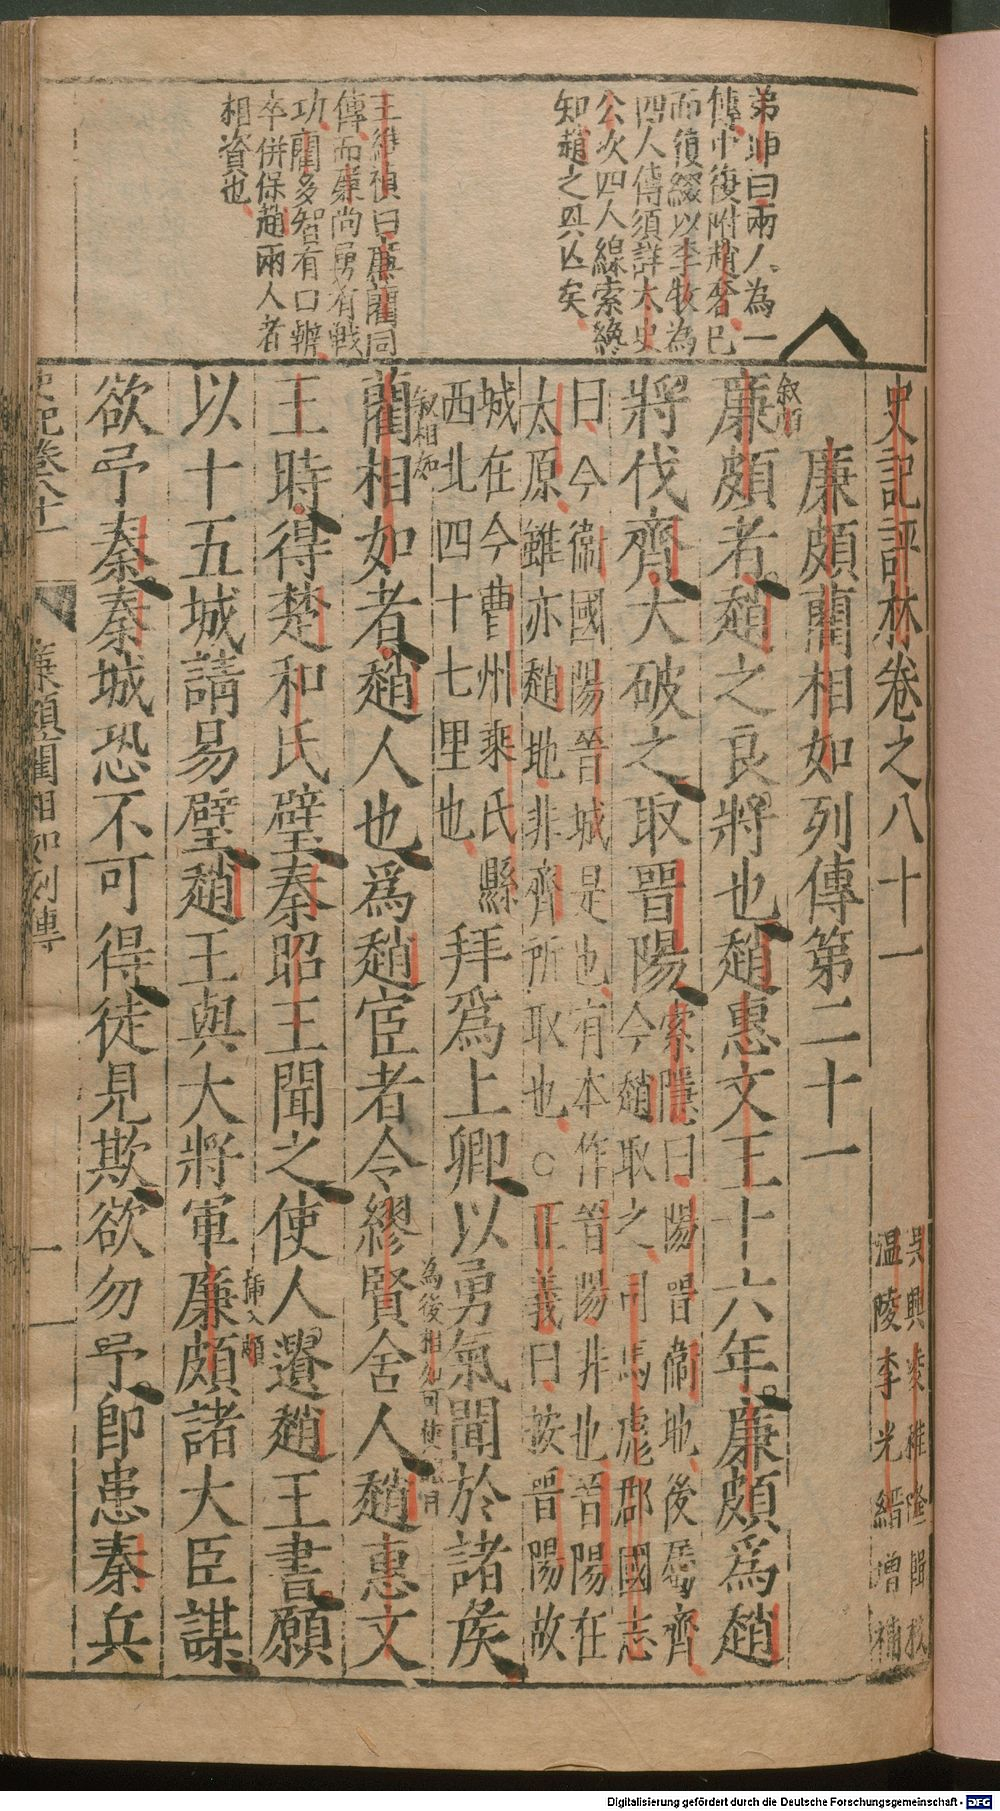 史記評林卷之八十一
吳興凌稚隆輯校
溫陵李光縉增補
廉頗藺相如列傳第二十一
叙頗
廉頗者趙之良將也趙惠文王十六年廉頗爲趙
將伐齊大破之取晋陽
索隱曰陽晋衛地後屬齊
今趙取之司馬彪郡國志
曰今衛國陽晋城是也有本作晋陽非也晋陽在
太原雖亦趙地非齊所取也○正義曰按晋陽故
城在今曹州乘氏縣
西北四十七里也
拜爲上卿以勇氣聞於諸矦
叙相如
藺相如者趙人也爲趙宦者令繆賢舍人趙惠文
為後相如可使
王時得楚和氏璧秦昭王聞之使人遺趙王書願
以十五城請易璧趙王與大將軍廉頗諸大臣謀
揷入頗
欲予秦秦城恐不可得徒見欺欲勿予即患秦兵
史記卷八十一
廉頗藺相如列傳
一
弟坤曰兩人為一
傳中復附趙奢已
而復綴以李牧為
四人傳須詳太史
公次四人線索纔
知趙之興亡矣
王維禎曰廉藺同
傳而廉尚勇有戰
功藺多智有口辨
卒併保趙兩人者
相資也
Digitalisierung gefördert durch die Deutsche Forschungsgemeinschaft - DFG